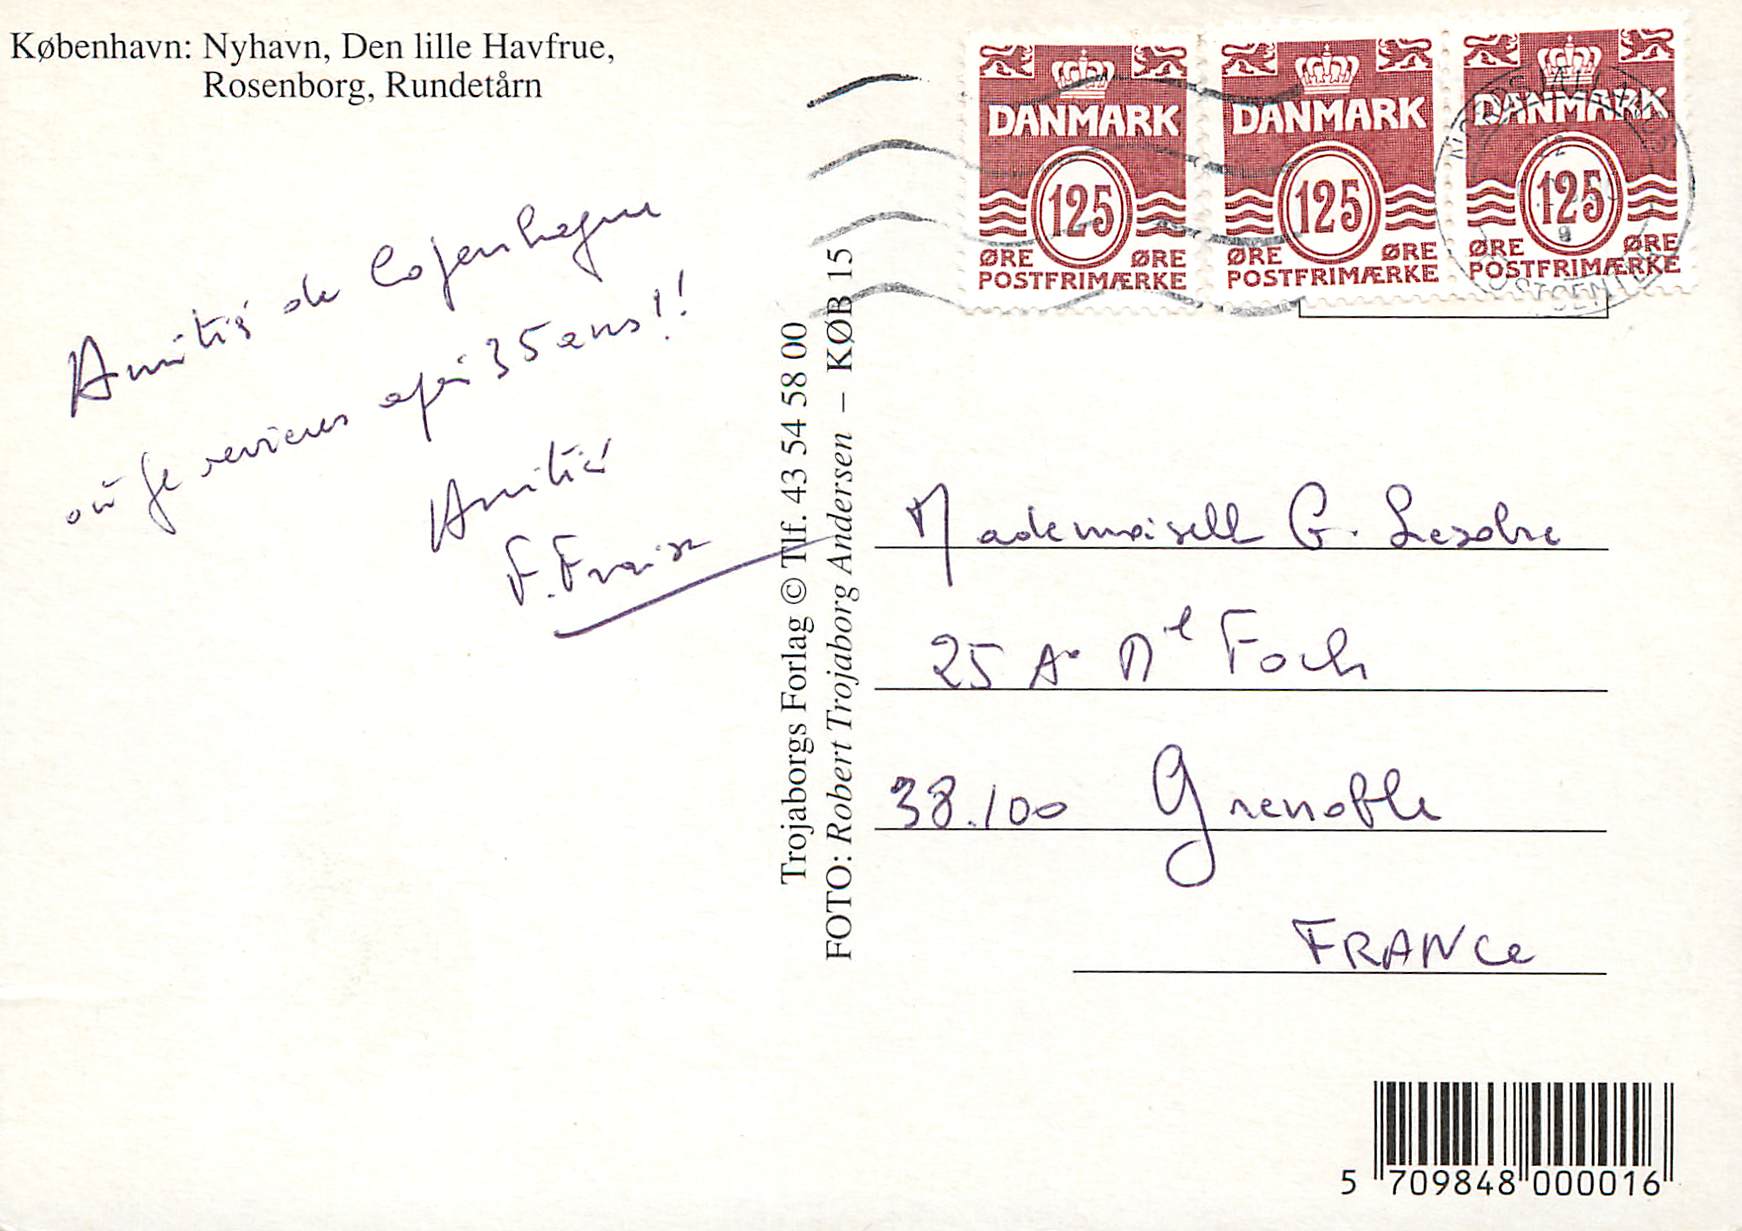 København: Nyhavn, Den lille Havfrue,
Rosenborg, Rundetårn
DANMARK
125
ØRE ØRE
POSTFRIMÆRKE
DANMARK
125
ØRE ØRE
POSTFRIMÆRKE
DANMARK
125
ØRE ØRE
POSTFRIMÆRKE
Amitiés de Copenhague
où je reviens après 35 ans!!
Amitié
F.
Trojaborgs Forlag © Tlf. 43 54 58 00
FOTO: Robert Trojaborg Andersen – KØB 15
Mademoiselle G.
25 Av Mal Foch
38.100 Grenoble
FRANCe
5 709848 000016